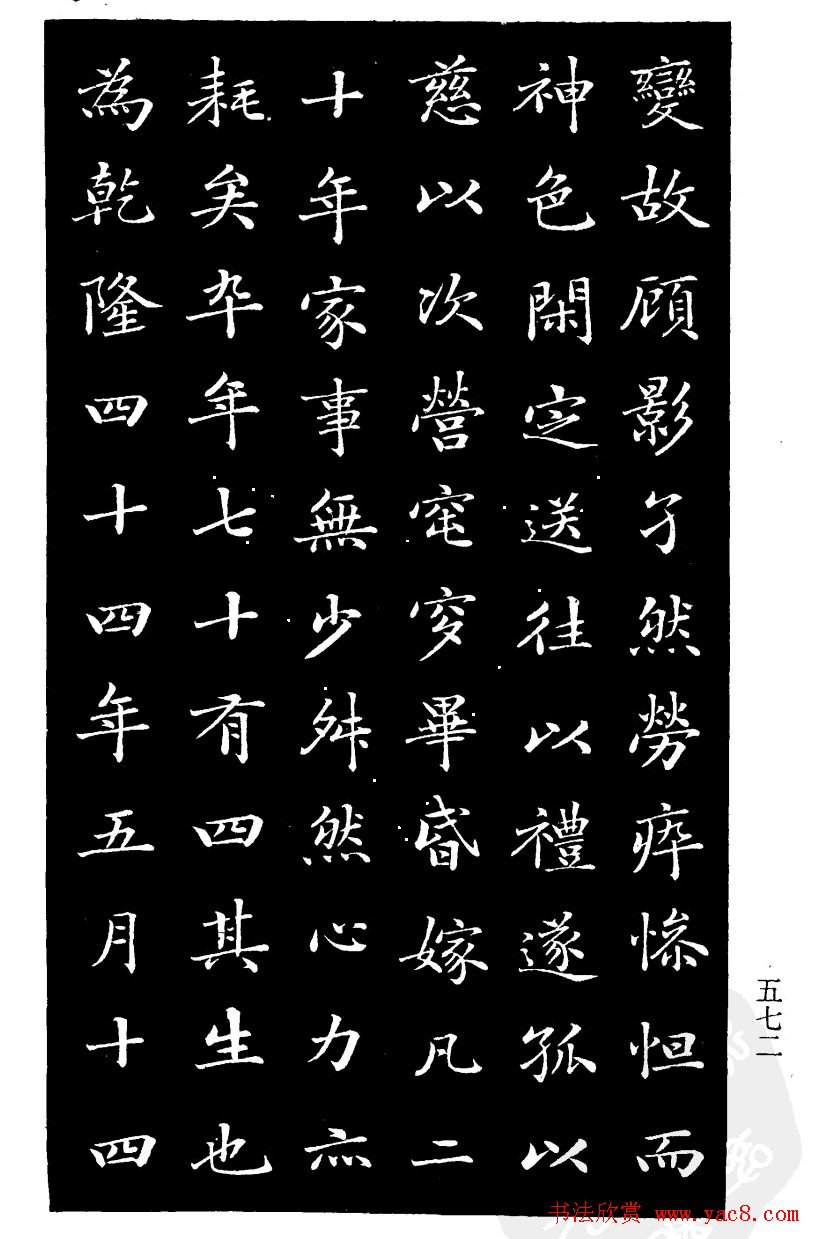 變故顧影孑然勞瘁慘怛而
神色閑定送往以禮遂孤以
慈以次營窀穸畢昏嫁凡二
十年家事無少舛然心力亦
耗矣卒年七十有四其生也
為乾隆四十四年五月十四
五七二
书法欣赏 www.yac8.com